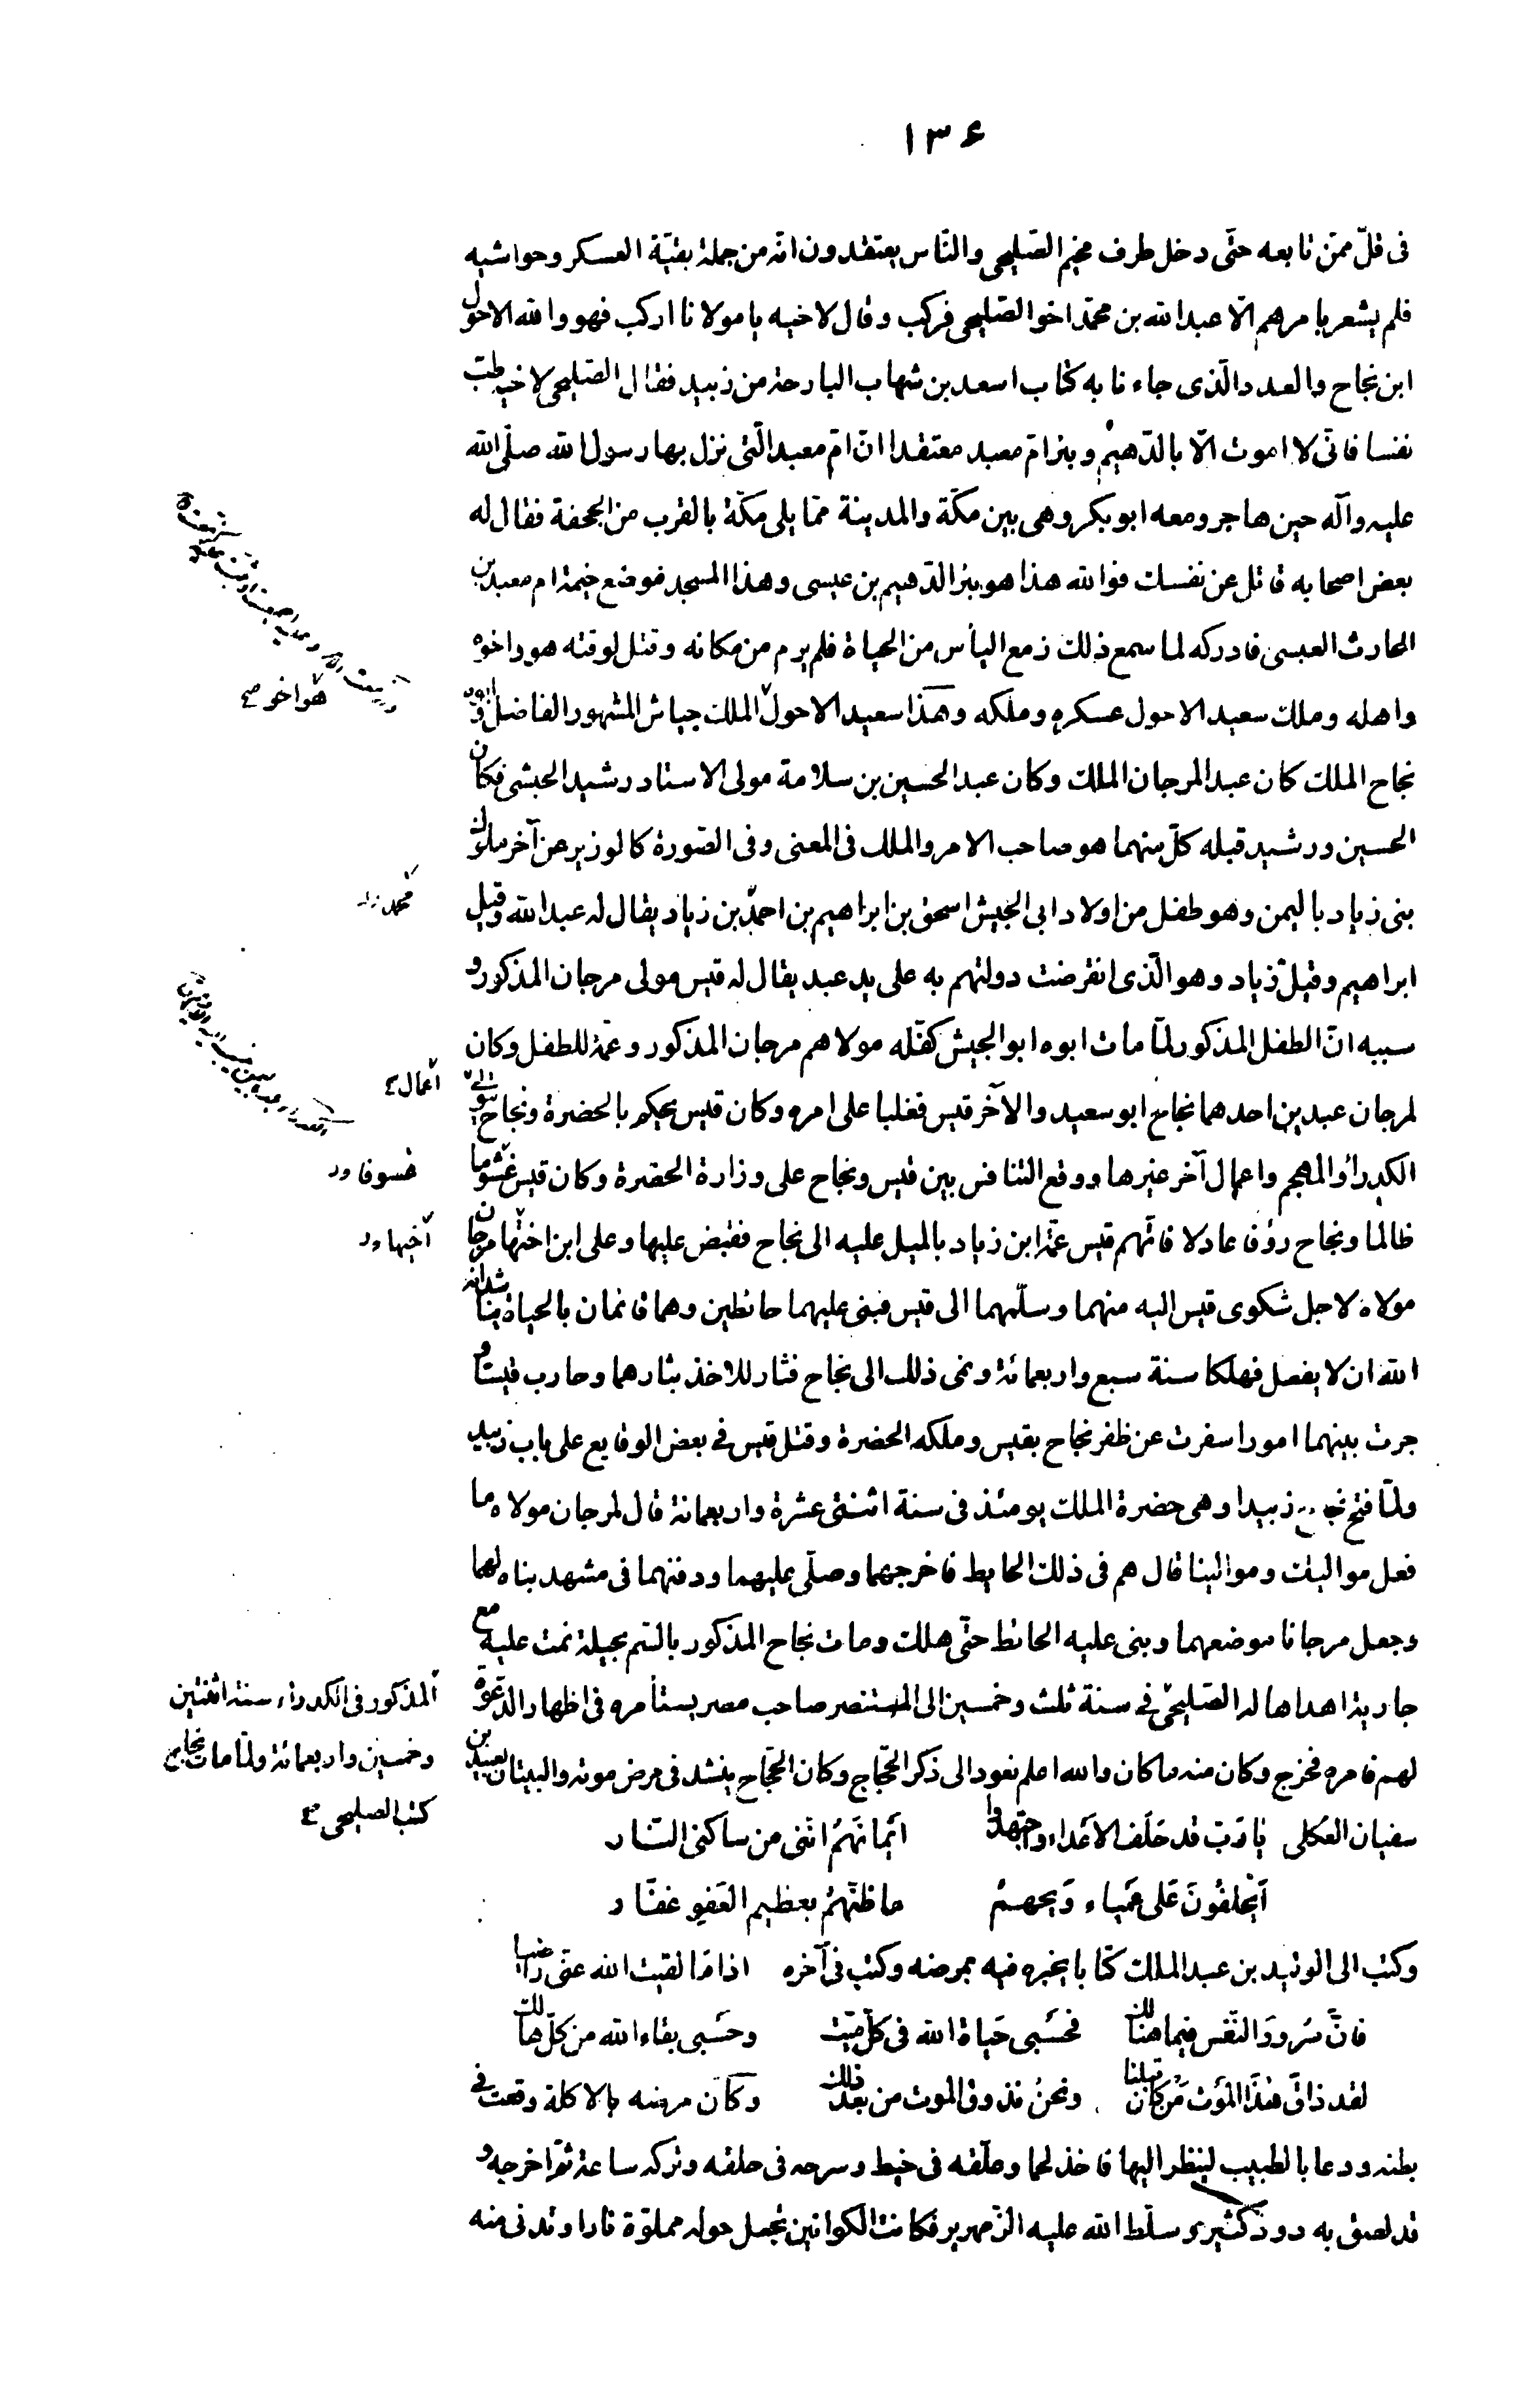 ١٣٤
فى قلّ ممّن تابعه حتّى دخل طرف مخيم الصّليحى والنّاس يعتقدون انّه من جملة بقيّة العسكر وحواشيه
فلم يشعر بامرهم الّا عبد الله بن محمّد اخو الصّليحى فركب وقال لاخيه يا مولانا اركب فهو والله الاحول
ابن نجاح والعدد الّذى جاءنا به كتاب اسعد بن شهاب البارحة من زبيد فقال الصّليحى لاخيه طب
نفسا فانّى لا اموت الّا بالدّهيم وبئر امّ معبد معتقدا انّ امّ معبد الّتى نزل بها رسول الله صلّى الله
عليه وآله حين هاجر ومعه ابو بكر وهى بين مكّة والمدينة ممّا يلى مكّة بالقرب من الجحفة فقال له
بعض اصحابه قاتل عن نفسك فوالله هذا هو بئر الدّهيم بن عيسى وهذا المسجد موضع خيمة ام معبد بن
الحارث العبسى فادركه لما سمع ذلك زمع اليأس من الحياة فلم يرم من مكانه وقتل لوقته هو واخوه
واهله وملك سعيد الاحول عسكره وملكه وهذا سعيد الاحول الملك جياش المشهور الفاضل
هو اخو
نجاح الملك كان عبد المرجان الملك وكان عبد الحسين بن سلامة مولى الاستاد رشيد الحبشى فكان
الحسين ورشيد قبله كلّ منهما هو صاحب الامر والملك فى المعنى وفى الصّورة كالوزير عن آخر ملوك
بنى زياد باليمن وهو طفل من اولاد ابى الجيش اسحق بن ابراهيم بن احمد بن زياد يقال له عبد الله وقيل
محمّد
ابراهيم وقيل زياد وهو الّذى انقرضت دولتهم به على يد عبد يقال له قيس مولى مرجان المذكور و
سببه انّ الطفل المذكور لمّا مات ابوه ابو الجيش كفّله مولاهم مرجان المذكور وعمّة للطفل وكان
لمرجان عبدين احدهما نجاح ابو سعيد والآخر قيس فغلبا على امره وكان قيس يحكم بالحضرة ونجاح يتولّى
اعمال
الكدراء والمهجم واعمال آخر غيرها ووقع التنافس بين قيس ونجاح على وزارة الحضرة وكان قيس غشوما
عسوفا
ظالما ونجاح رؤفا عادلا فاتّهم قيس عمّة ابن زياد بالميل عليه الى نجاح فقبض عليها وعلى ابن اختها مرجان
اخيها
مولاه لاجل شكوى قيس اليه منهما وسلّمهما الى قيس فبنى عليهما حائطين وهما قائمان بالحياة يناشدانه
الله ان لا يفعل فهلكا سنة سبع واربعمائة ونمى ذلك الى نجاح فثار للاخذ بثارهما وحارب قيسا و
جرت بينهما امورا سفرت عن ظفر نجاح بقيس وملكه الحضرة وقتل قيس فى بعض الوقايع على باب زبيد
ولمّا فتح نجاح زبيدا وهى حضرة الملك يومئذ فى سنة اثنتى عشرة واربعمائة قال لمرجان مولاه ما
فعل مواليك وموالينا قال هم فى ذلك الحايط فاخرجهما وصلّى عليهما ودفنهما فى مشهد بناه لهما
وجعل مرجانا موضعهما وبنى عليه الحائط حتّى هلك ومات نجاح المذكور بالسّم بحيلة تمت عليه مع
جارية اهداها له الصّليحى فى سنة ثلث وخمسين الى المستنصر صاحب مصر يستأمره فى اظهار الدّعوة
المذكور فى الكدراء سنة اثنتين
وخمسين واربعمائة ولمّا مات نجاح
كتب الصليحى
لهم فامره فخرج وكان منه ما كان والله اعلم نعود الى ذكر الحجّاج وكان الحجّاج ينشد فى مرض موته والبيتان لعبيد بن
سفيان العكلى يا رَبّ قد حَلَف الاَعداء واجتهدوا ايمانَهُم اننى من ساكنى النّار
اَيحلفُونَ عَلى عمَياء وَيحهمُ ما ظنّهُم بعظيم العَفو غفّار
وكتب الى الوليد بن عبد الملك كتّابا يخبره فيه بمرضه وكتب فى آخره اذا مَا لقيت الله عنّى راضيا
فانَّ سُرورَ النّفس فيما هنالك فحَسْبى حَياة الله فى كلّ ميّت وحَسْبى بقاء الله من كلّ هالك
لقد ذاقَ هذَا المَوت مَن كان قبلنا ونحنُ نذوق الموت من بعد ذلك وكان مرضه بالاكلة وقعت فى
بطنه ودعا بالطبيب لينظر اليها فاخذ لحما وعلّقه فى خيط وسرحه فى حلقه وتركه ساعة ثمّ اخرجه و
قد لصق به دود كثير وسلّط الله عليه الزّمهرير فكانت الكوانين تجعل حوله مملوّة نارا وتدنى منه